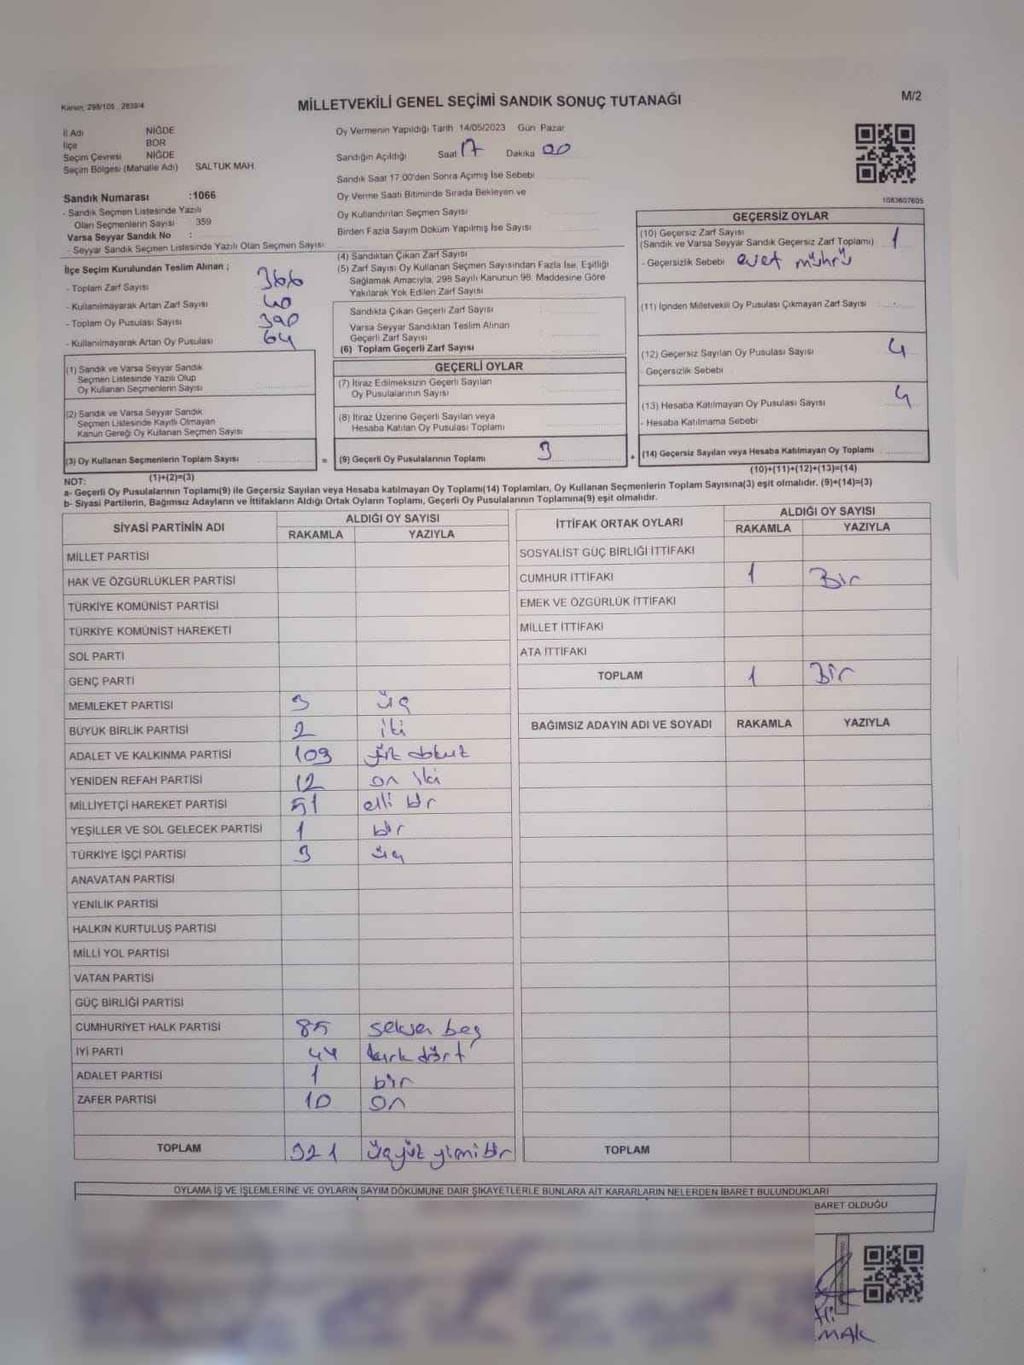 Kanun: 298/105 , 2839/4
MİLLETVEKİLİ GENEL SEÇİMİ SANDIK SONUÇ TUTANAĞI
M/2
İl Adı NİĞDE
İlçe BOR
Seçim Çevresi NİĞDE
Seçim Bölgesi (Mahalle Adı) SALTUK MAH.
Oy Vermenin Yapıldığı Tarih 14/05/2023 Gün Pazar
Sandığın Açıldığı Saat 17 Dakika 00
Sandık Saat 17:00'den Sonra Açılmış İse Sebebi
Oy Verme Saati Bitiminde Sırada Bekleyen ve
Oy Kullandırılan Seçmen Sayısı
Birden Fazla Sayım Döküm Yapılmış İse Sayısı
1083607605
Sandık Numarası :1066
- Sandık Seçmen Listesinde Yazılı
Olan Seçmenlerin Sayısı 359
Varsa Seyyar Sandık No :
- Seyyar Sandık Seçmen Listesinde Yazılı Olan Seçmen Sayısı:
İlçe Seçim Kurulundan Teslim Alınan ;
- Toplam Zarf Sayısı 366
- Kullanılmayarak Artan Zarf Sayısı 40
- Toplam Oy Pusulası Sayısı 390
- Kullanılmayarak Artan Oy Pusulası 64
(1) Sandık ve Varsa Seyyar Sandık
Seçmen Listesinde Yazılı Olup
Oy Kullanan Seçmenlerin Sayısı
(2) Sandık ve Varsa Seyyar Sandık
Seçmen Listesinde Kayıtlı Olmayan
Kanun Gereği Oy Kullanan Seçmen Sayısı
(3) Oy Kullanan Seçmenlerin Toplam Sayısı
(1)+(2)=(3)
(4) Sandıktan Çıkan Zarf Sayısı
(5) Zarf Sayısı Oy Kullanan Seçmen Sayısından Fazla İse, Eşitliği
Sağlamak Amacıyla, 298 Sayılı Kanunun 98. Maddesine Göre
Yakılarak Yok Edilen Zarf Sayısı
Sandıkta Çıkan Geçerli Zarf Sayısı
Varsa Seyyar Sandıktan Teslim Alınan
Geçerli Zarf Sayısı
(6) Toplam Geçerli Zarf Sayısı
GEÇERLİ OYLAR
(7) İtiraz Edilmeksizin Geçerli Sayılan
Oy Pusulalarının Sayısı
(8) İtiraz Üzerine Geçerli Sayılan veya
Hesaba Katılan Oy Pusulası Toplamı
= (9) Geçerli Oy Pusulalarının Toplamı 3 +
GEÇERSİZ OYLAR
(10) Geçersiz Zarf Sayısı
(Sandık ve Varsa Seyyar Sandık Geçersiz Zarf Toplamı) 1
- Geçersizlik Sebebi evet mührü
(11) İçinden Milletvekili Oy Pusulası Çıkmayan Zarf Sayısı
(12) Geçersiz Sayılan Oy Pusulası Sayısı 4
- Geçersizlik Sebebi
(13) Hesaba Katılmayan Oy Pusulası Sayısı 4
- Hesaba Katılmama Sebebi
(14) Geçersiz Sayılan veya Hesaba Katılmayan Oy Toplamı
(10)+(11)+(12)+(13)=(14)
NOT:
a- Geçerli Oy Pusulalarının Toplamı(9) ile Geçersiz Sayılan veya Hesaba katılmayan Oy Toplamı(14) Toplamları, Oy Kullanan Seçmenlerin Toplam Sayısına(3) eşit olmalıdır. (9)+(14)=(3)
b- Siyasi Partilerin, Bağımsız Adayların ve İttifakların Aldığı Ortak Oyların Toplamı, Geçerli Oy Pusulalarının Toplamına(9) eşit olmalıdır.
SİYASİ PARTİNİN ADI ALDIĞI OY SAYISI
RAKAMLA YAZIYLA
MİLLET PARTİSİ
HAK VE ÖZGÜRLÜKLER PARTİSİ
TÜRKİYE KOMÜNİST PARTİSİ
TÜRKİYE KOMÜNİST HAREKETİ
SOL PARTİ
GENÇ PARTİ
MEMLEKET PARTİSİ 3 üç
BÜYÜK BİRLİK PARTİSİ 2 iki
ADALET VE KALKINMA PARTİSİ 109 yüz dokuz
YENİDEN REFAH PARTİSİ 12 on iki
MİLLİYETÇİ HAREKET PARTİSİ 51 elli bir
YEŞİLLER VE SOL GELECEK PARTİSİ 1 bir
TÜRKİYE İŞÇİ PARTİSİ 3 üç
ANAVATAN PARTİSİ
YENİLİK PARTİSİ
HALKIN KURTULUŞ PARTİSİ
MİLLİ YOL PARTİSİ
VATAN PARTİSİ
GÜÇ BİRLİĞİ PARTİSİ
CUMHURİYET HALK PARTİSİ 85 seksen beş
İYİ PARTİ 44 kırk dört
ADALET PARTİSİ 1 bir
ZAFER PARTİSİ 10 on
TOPLAM 321 üçyüz yirmi bir
İTTİFAK ORTAK OYLARI ALDIĞI OY SAYISI
RAKAMLA YAZIYLA
SOSYALİST GÜÇ BİRLİĞİ İTTİFAKI
CUMHUR İTTİFAKI 1 Bir
EMEK VE ÖZGÜRLÜK İTTİFAKI
MİLLET İTTİFAKI
ATA İTTİFAKI
TOPLAM 1 Bir
BAĞIMSIZ ADAYIN ADI VE SOYADI RAKAMLA YAZIYLA
TOPLAM
OYLAMA İŞ VE İŞLEMLERİNE VE OYLARIN SAYIM DÖKÜMÜNE DAİR ŞİKAYETLERLE BUNLARA AİT KARARLARIN NELERDEN İBARET BULUNDUKLARI
BARET OLDUĞU